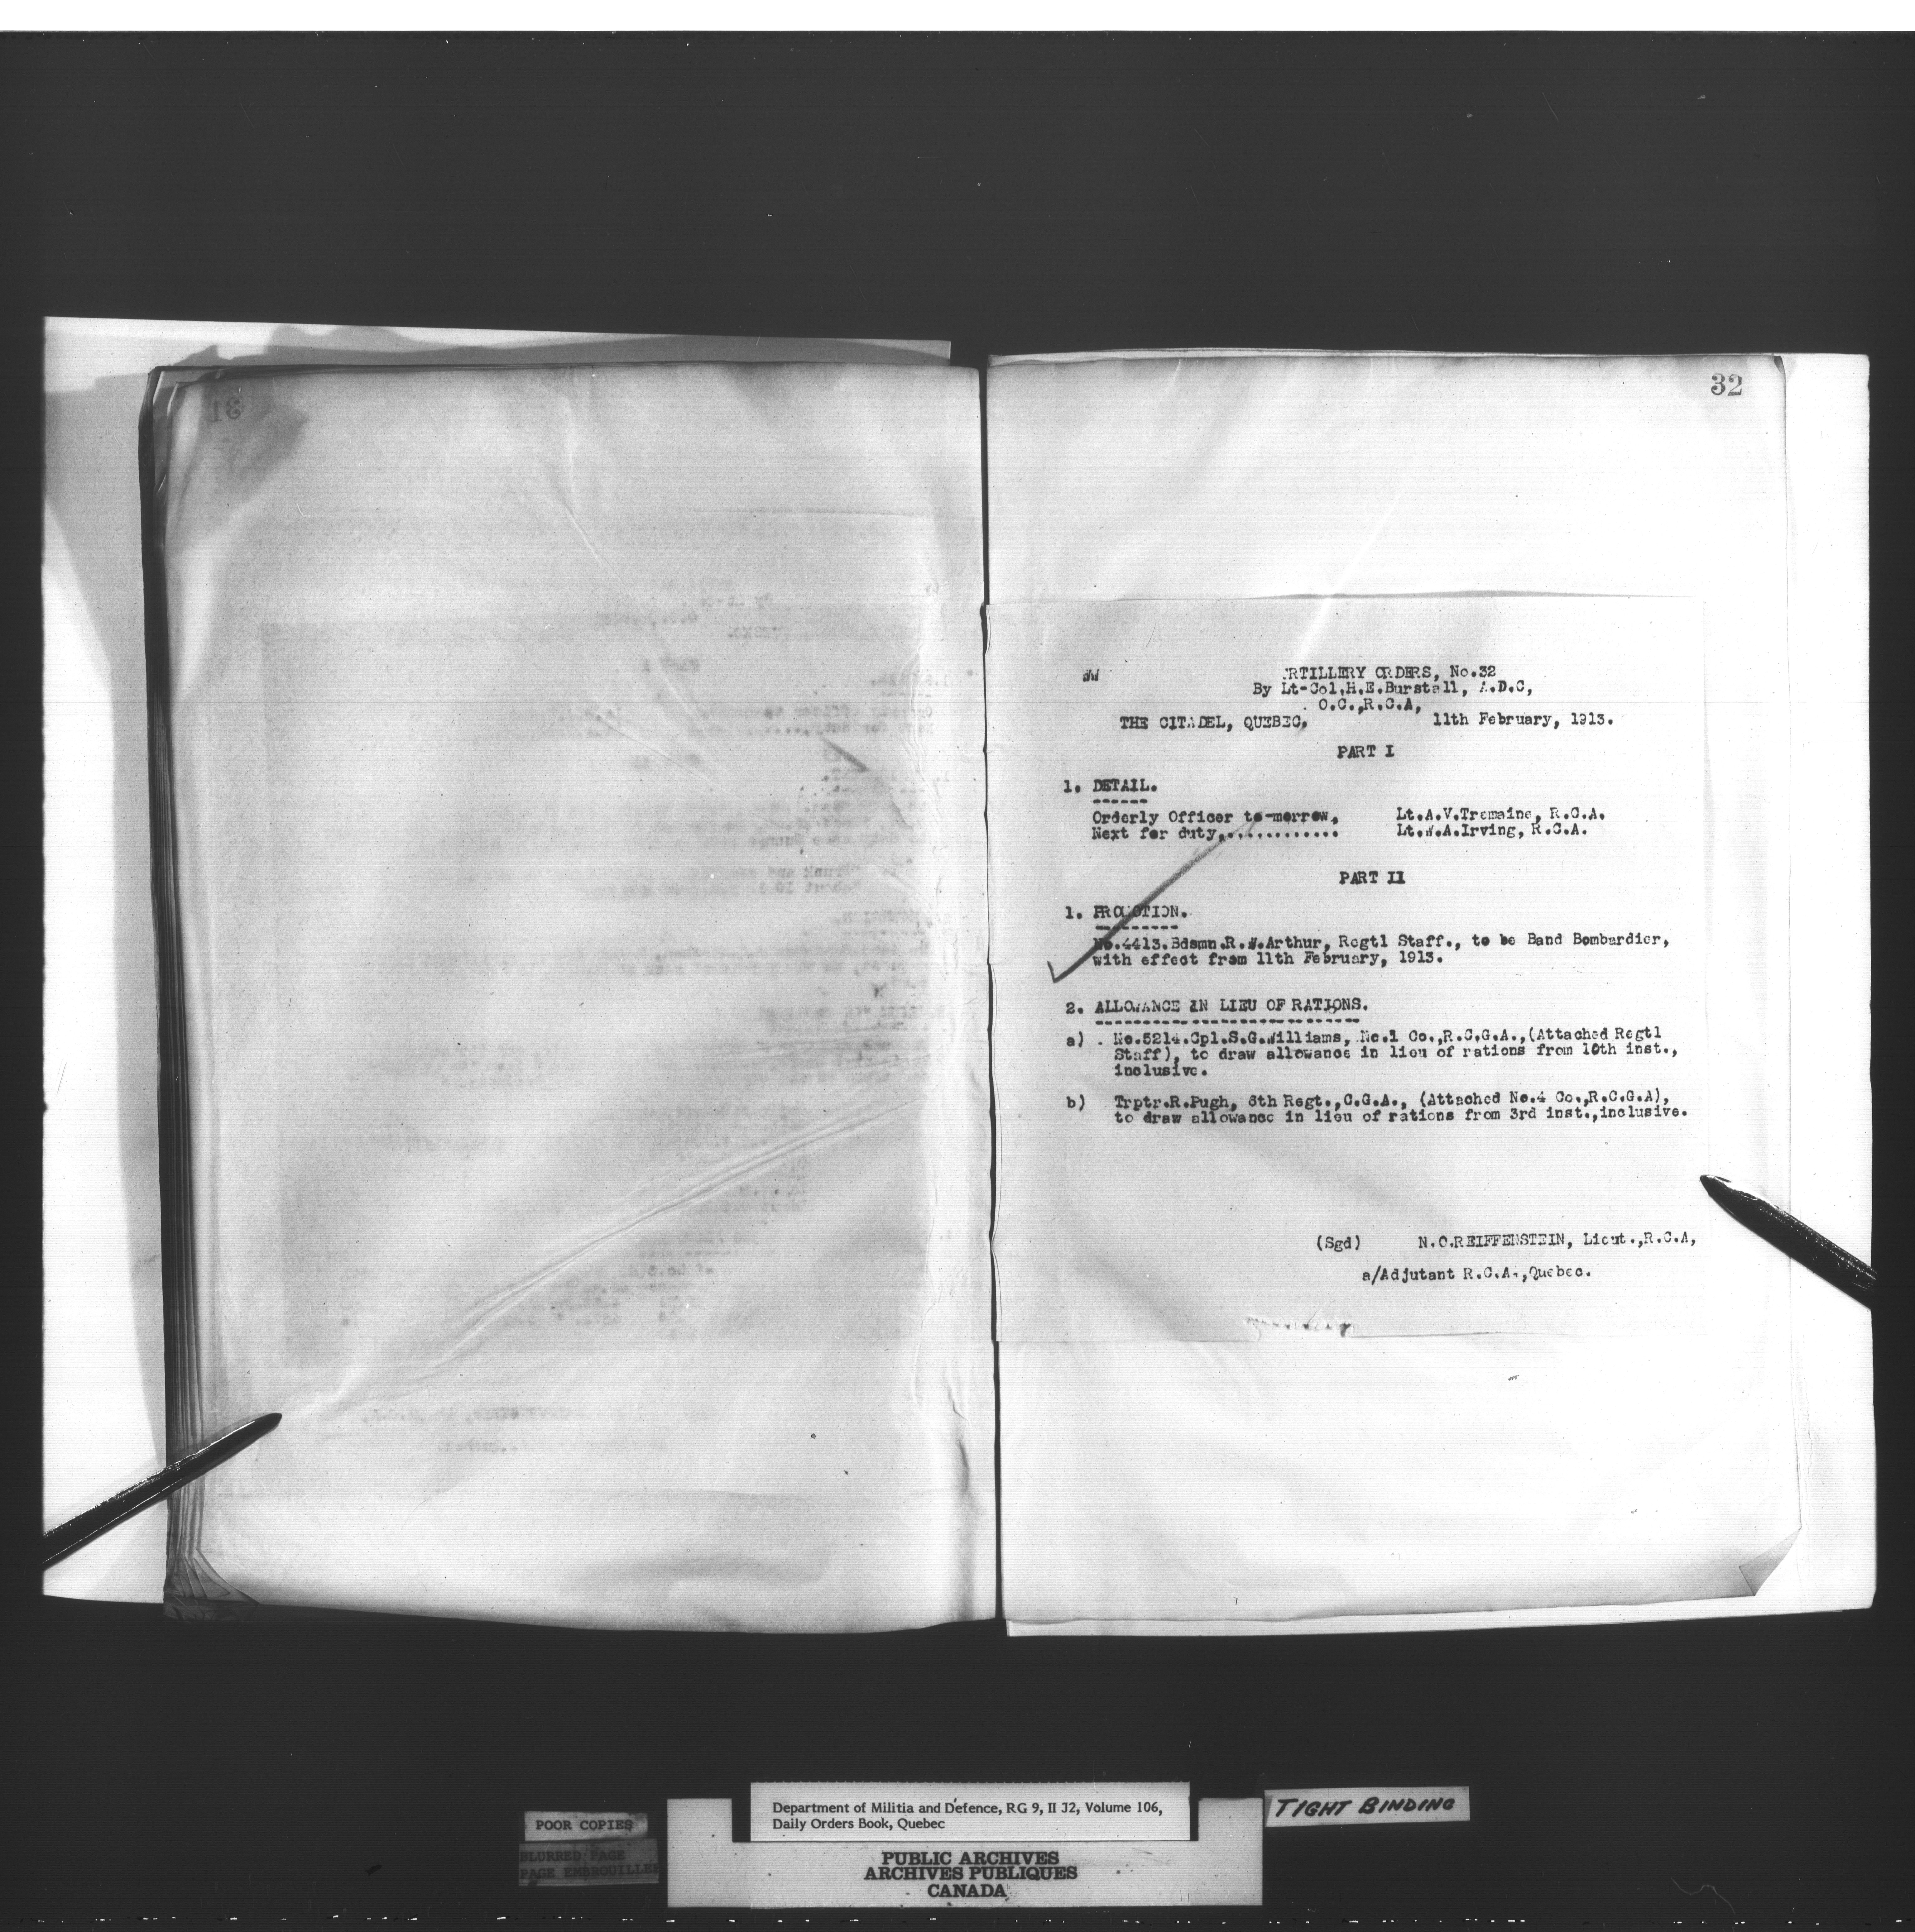 32
ARTILLERY ORDERS, No.32
By Lt-Col,H.E.Burstall, A.D.C,
O.C.,R.C.A,
THE CITADEL, QUEBEC, 11th February, 1913.
PART I
1. DETAIL.
Orderly Officer to-morrow, Lt.A.V.Tremaine, R.C.A.
Next for duty,............ Lt.W.A.Irving, R.C.A.
PART II
1. PROMOTION.
No.4413.Bdsmn.R.W.Arthur, Regtl Staff., to be Band Bombardier,
with effect from 11th February, 1913.
2. ALLOWANCE IN LIEU OF RATIONS.
a) No.5214.Cpl.S.G.Williams, No.1 Co.,R.C.G.A.,(Attached Regtl
Staff), to draw allowance in lieu of rations from 10th inst.,
inclusive.
b) Trptr.R.Pugh, 6th Regt.,C.G.A., (Attached No.4 Co.,R.C.G.A),
to draw allowance in lieu of rations from 3rd inst.,inclusive.
(Sgd) N.C.REIFFENSTEIN, Lieut.,R.C.A,
a/Adjutant R.C.A.,Quebec.
Department of Militia and Defence, RG 9, II J2, Volume 106,
Daily Orders Book, Quebec
TIGHT BINDING
POOR COPIES
BLURRED PAGE
PAGE EMBROUILLEE
PUBLIC ARCHIVES
ARCHIVES PUBLIQUES
CANADA